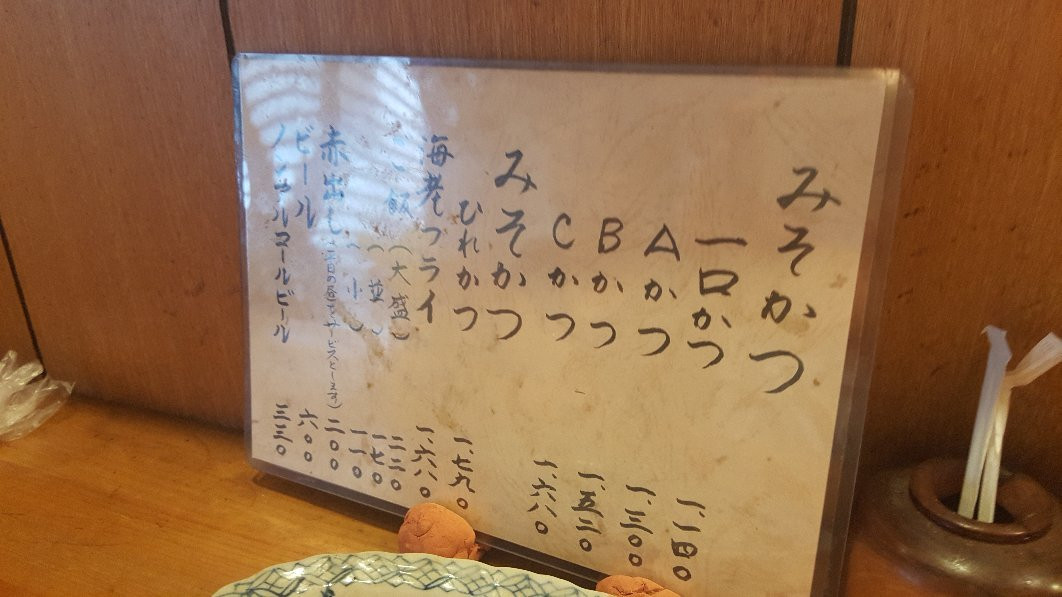 みそかつ
一口かつ 一、一四〇
Aかつ 一、三〇〇
Bかつ 一、五二〇
Cかつ 一、六八〇
みそかつ
ひれかつ 一、七九〇
海老フライ 一、六八〇
ご飯(大盛) 二二〇
(並) 一七〇
(小) 一一〇
赤出し 二〇〇
ビール 六〇〇
ノンアルコールビール 三三〇